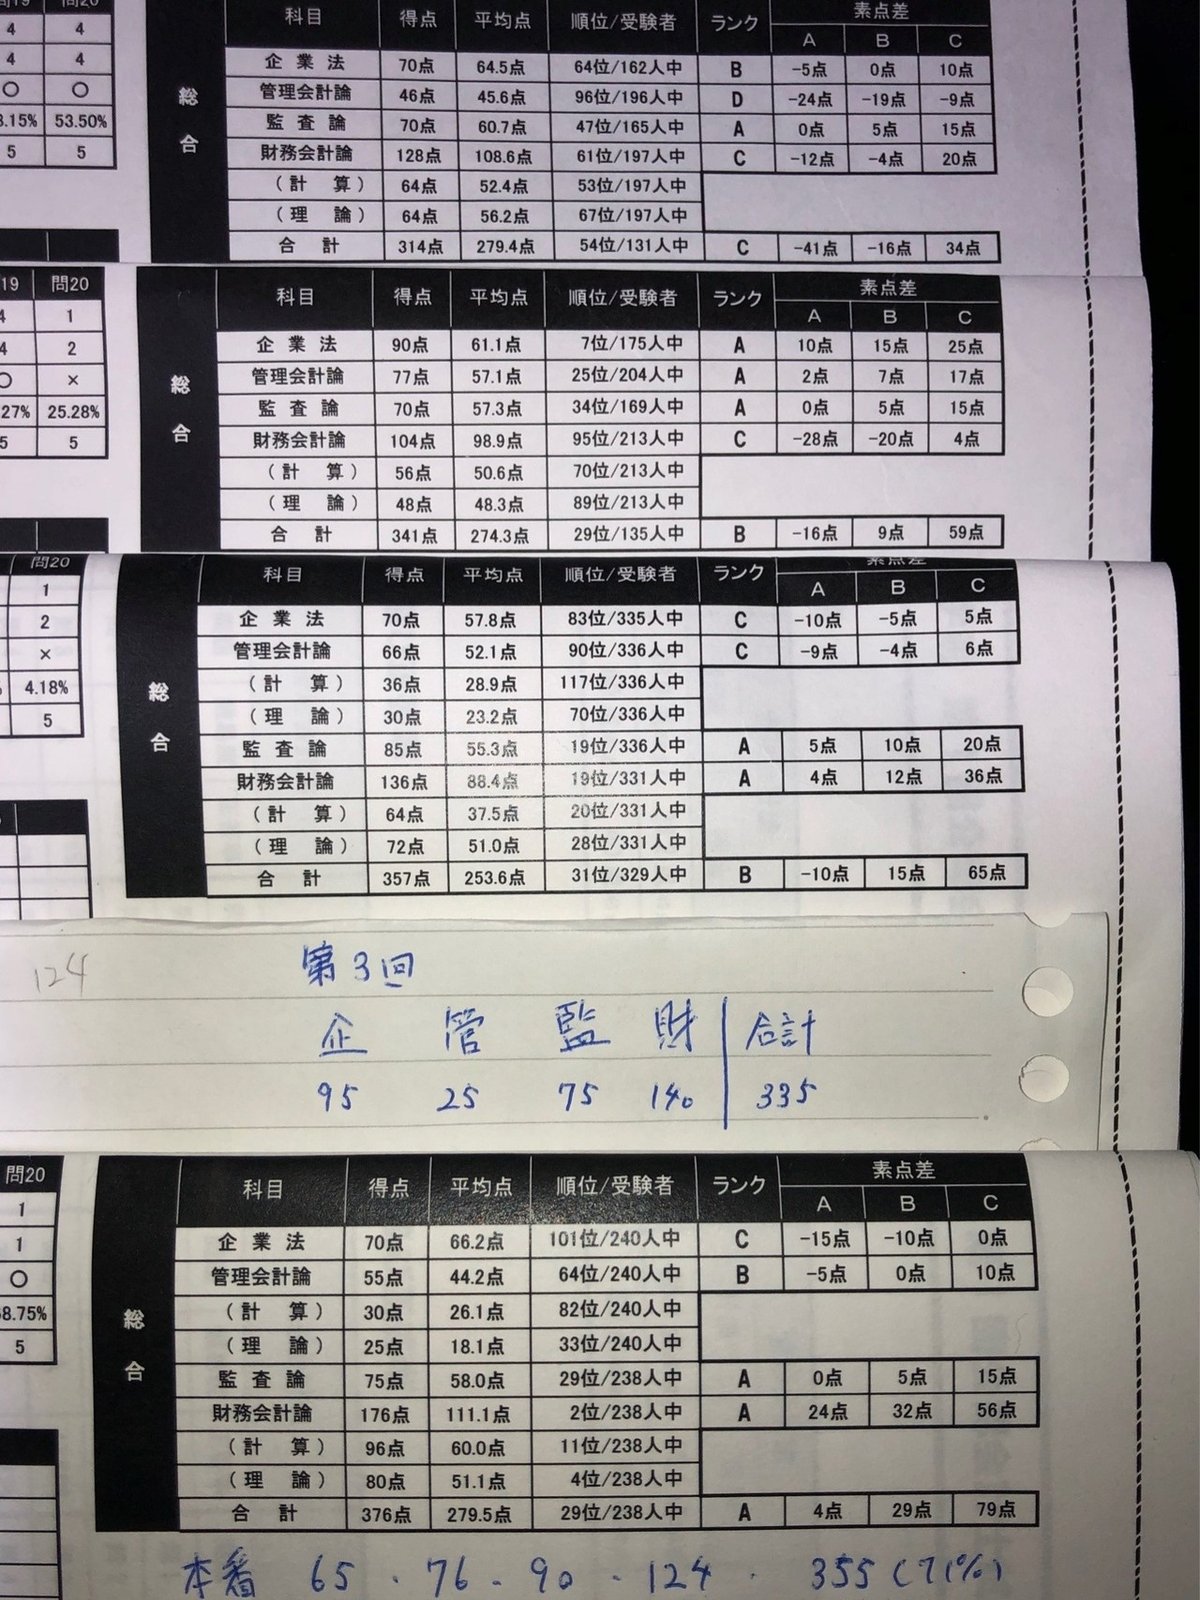 問19 問20
4 4
4 4
○ ○
3.15% 53.50%
5 5
総合
科目 得点 平均点 順位/受験者 ランク 素点差
A B C
企業法 70点 64.5点 64位/162人中 B -5点 0点 10点
管理会計論 46点 45.6点 96位/196人中 D -24点 -19点 -9点
監査論 70点 60.7点 47位/165人中 A 0点 5点 15点
財務会計論 128点 108.6点 61位/197人中 C -12点 -4点 20点
(計算) 64点 52.4点 53位/197人中
(理論) 64点 56.2点 67位/197人中
合計 314点 279.4点 54位/131人中 C -41点 -16点 34点
19 問20
4 1
4 2
○ ×
27% 25.28%
5 5
総合
科目 得点 平均点 順位/受験者 ランク 素点差
A B C
企業法 90点 61.1点 7位/175人中 A 10点 15点 25点
管理会計論 77点 57.1点 25位/204人中 A 2点 7点 17点
監査論 70点 57.3点 34位/169人中 A 0点 5点 15点
財務会計論 104点 98.9点 95位/213人中 C -28点 -20点 4点
(計算) 56点 50.6点 70位/213人中
(理論) 48点 48.3点 89位/213人中
合計 341点 274.3点 29位/135人中 B -16点 9点 59点
問20
1
2
×
4.18%
5
総合
科目 得点 平均点 順位/受験者 ランク 素点差
A B C
企業法 70点 57.8点 83位/335人中 C -10点 -5点 5点
管理会計論 66点 52.1点 90位/336人中 C -9点 -4点 6点
(計算) 36点 28.9点 117位/336人中
(理論) 30点 23.2点 70位/336人中
監査論 85点 55.3点 19位/336人中 A 5点 10点 20点
財務会計論 136点 88.4点 19位/331人中 A 4点 12点 36点
(計算) 64点 37.5点 20位/331人中
(理論) 72点 51.0点 28位/331人中
合計 357点 253.6点 31位/329人中 B -10点 15点 65点
124 第3回
企 管 監 財 合計
95 25 75 140 335
問20
1
1
○
68.75%
5
総合
科目 得点 平均点 順位/受験者 ランク 素点差
A B C
企業法 70点 66.2点 101位/240人中 C -15点 -10点 0点
管理会計論 55点 44.2点 64位/240人中 B -5点 0点 10点
(計算) 30点 26.1点 82位/240人中
(理論) 25点 18.1点 33位/240人中
監査論 75点 58.0点 29位/238人中 A 0点 5点 15点
財務会計論 176点 111.1点 2位/238人中 A 24点 32点 56点
(計算) 96点 60.0点 11位/238人中
(理論) 80点 51.1点 4位/238人中
合計 376点 279.5点 29位/238人中 A 4点 29点 79点
本番 65 · 76 · 90 · 124 · 355 (71%)